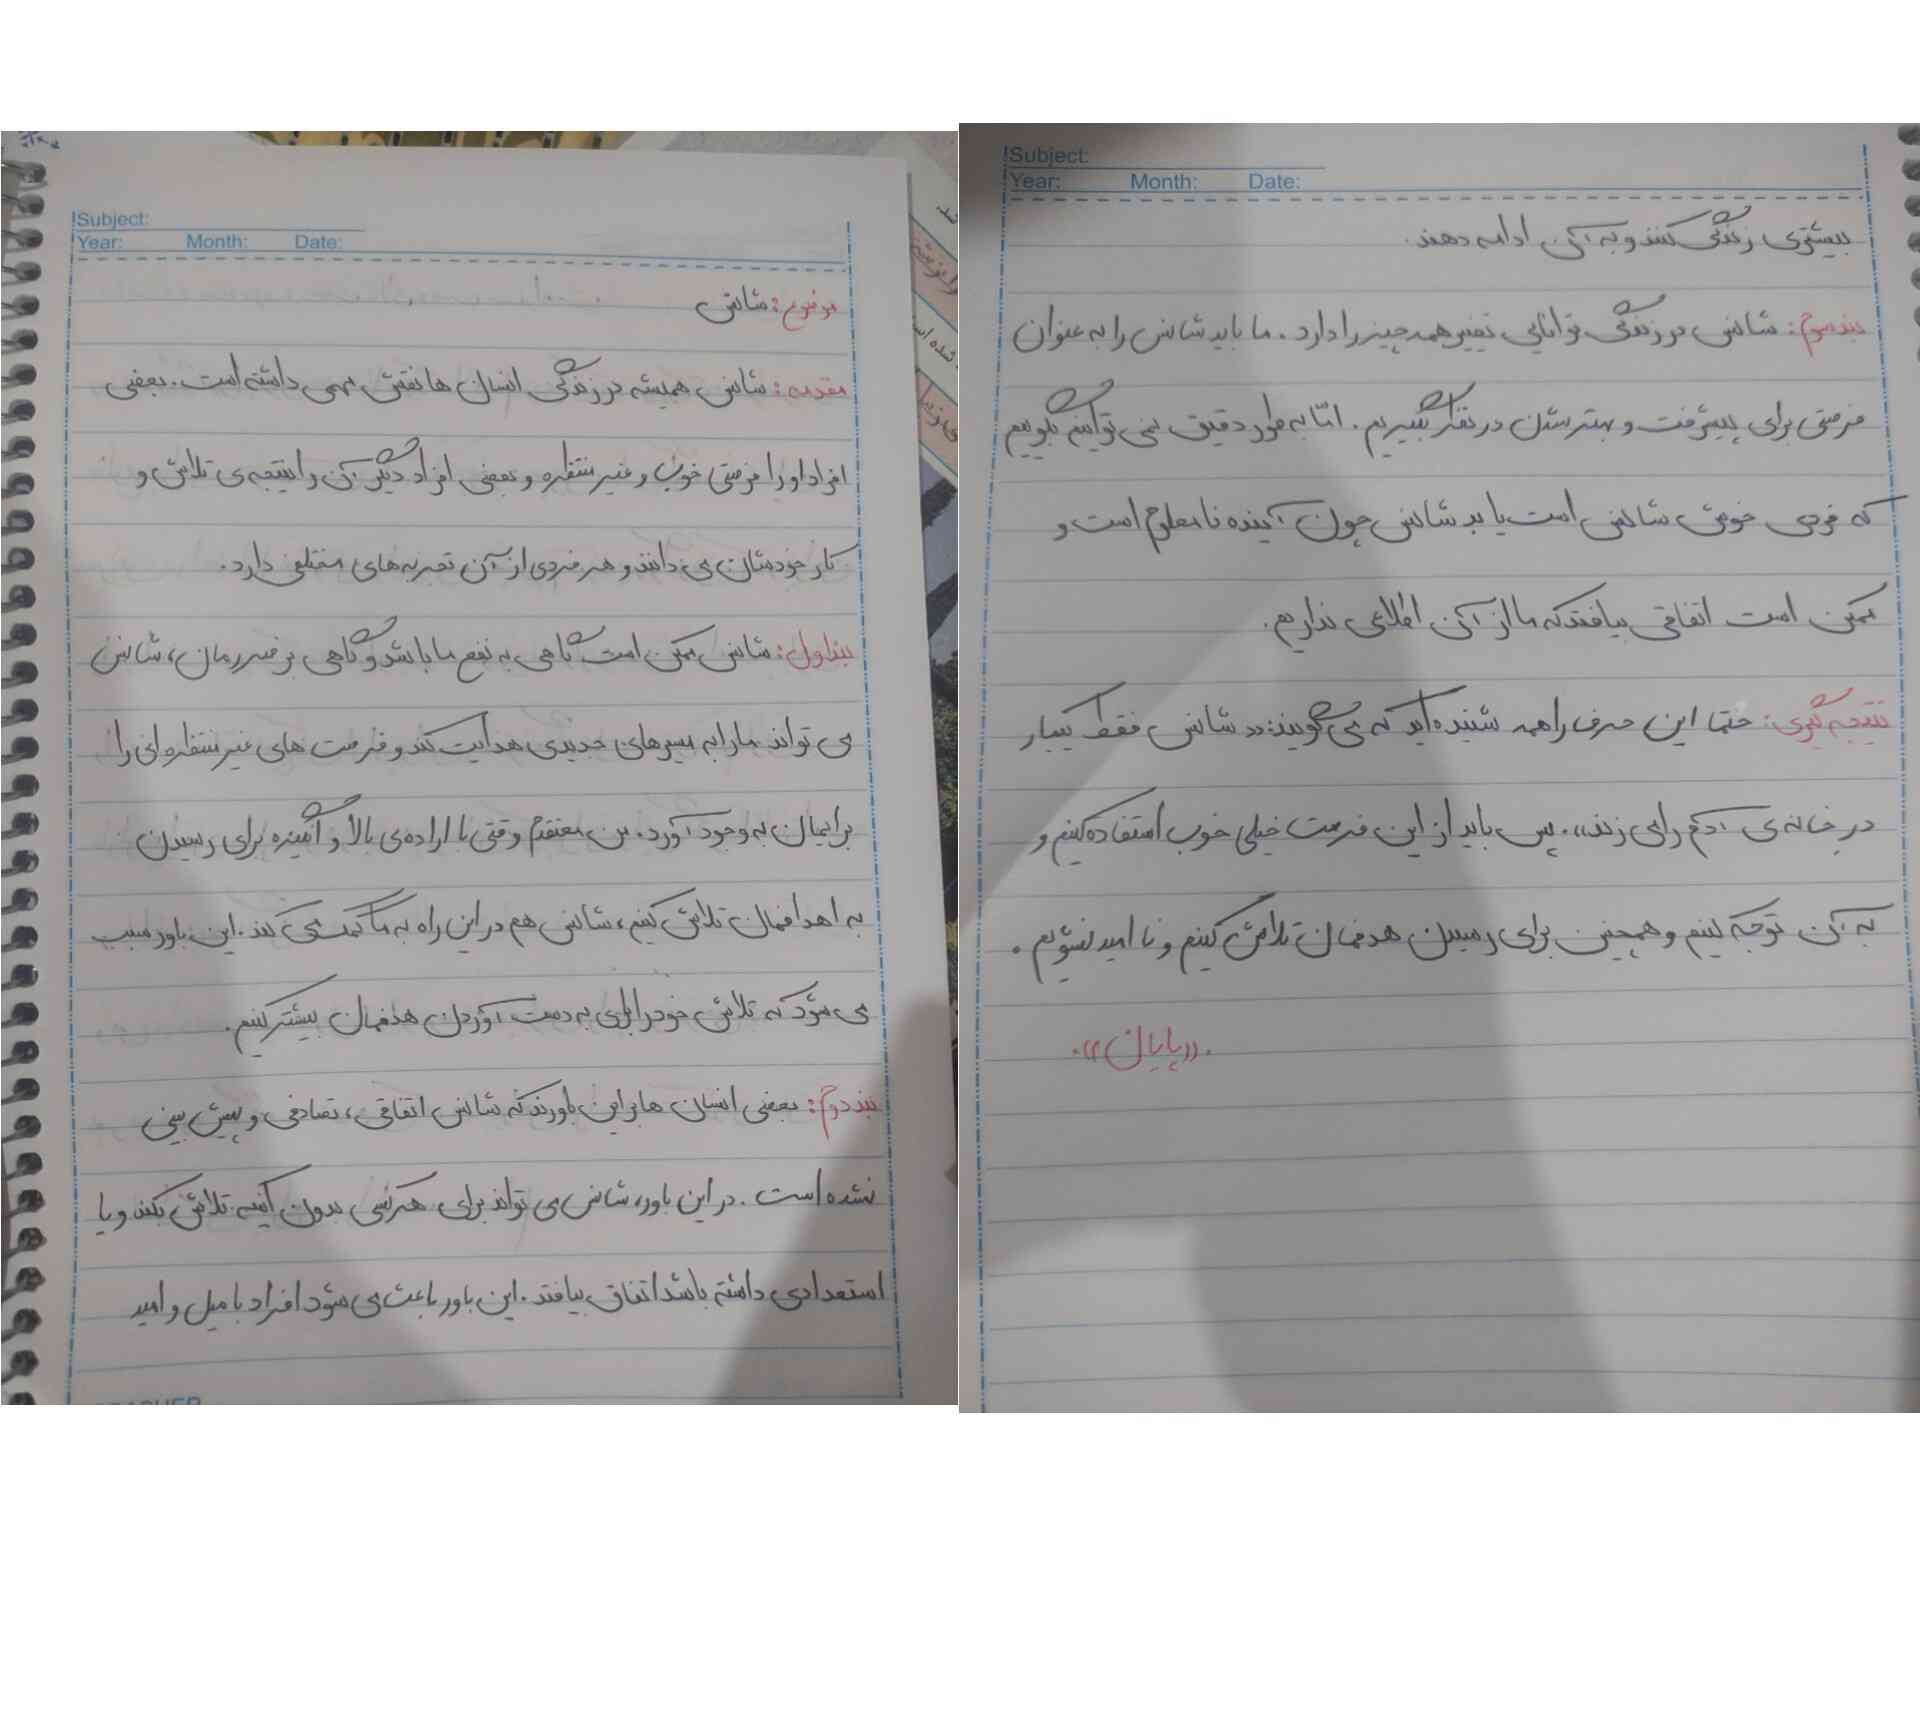 Subject:
Year: Month: Date:
موضوع: شانس
مقدمه: شانس همیشه در زندگی انسان ها نقش مهمی داشته است. بعضی
افراد او را فرصتی خوب و غیر منتظره و بعضی افراد دیگر آن را نتیجه ی تلاش و
کار خودشان می دانند و هر فردی از آن تجربه های مختلفی دارد.
بند اول: شانس ممکن است گاهی به نفع ما باشد و گاهی بر ضررمان، شانس
می تواند ما را به مسیرهای جدیدی هدایت کند و فرصت های غیر منتظره ای را
برایمان به وجود آورد. من معتقدم وقتی با اراده ی بالا و انگیزه برای رسیدن
به اهدافمان تلاش کنیم، شانس هم در این راه به ما کمک می کند. این باور سبب
می شود که تلاش خود را برای به دست آوردن هدفمان بیشتر کنیم.
بند دوم: بعضی انسان ها بر این باورند که شانس اتفاقی، تصادفی و پیش بینی
نشده است. در این باور، شانس می تواند برای هرکسی بدون اینکه تلاش بکند و یا
استعدادی داشته باشد اتفاق بیافتد. این باور باعث می شود افراد با میل و امید
Subject:
Year: Month: Date:
بیشتری زندگی کنند و به آن ادامه دهند.
بند سوم: شانس در زندگی توانایی تغییر همه چیز را دارد. ما باید شانس را به عنوان
فرصتی برای پیشرفت و بهتر شدن در نظر بگیریم. امّا به طور دقیق نمی توانیم بگوییم
که فردی خوش شانس است یا بد شانس چون آینده نامعلوم است و
ممکن است اتفاقی بیافتد که ما از آن اطلاعی نداریم.
نتیجه گیری: حتما این حرف را همه شنیده اید که می گویند: «شانس فقط یکبار
در خانه ی آدم را می زند». پس باید از این فرصت خیلی خوب استفاده کنیم و
به آن توجه کنیم و همچنین برای رسیدن هدفمان تلاش کنیم و نا امید نشویم.
.«پایان».